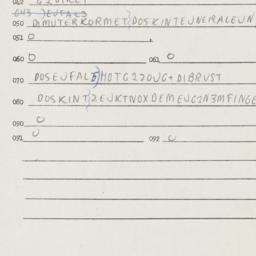 050 DIMUTERKORMET DOSKINTEJNERALEUN
051 0
060 0 061 0
070 DOSEJFALE) HOTG220JG+DIBRUST
080 DOSKINT) 2EJKTNOXDEMEJG2N3MFINGE
090 0
091 0 092 0